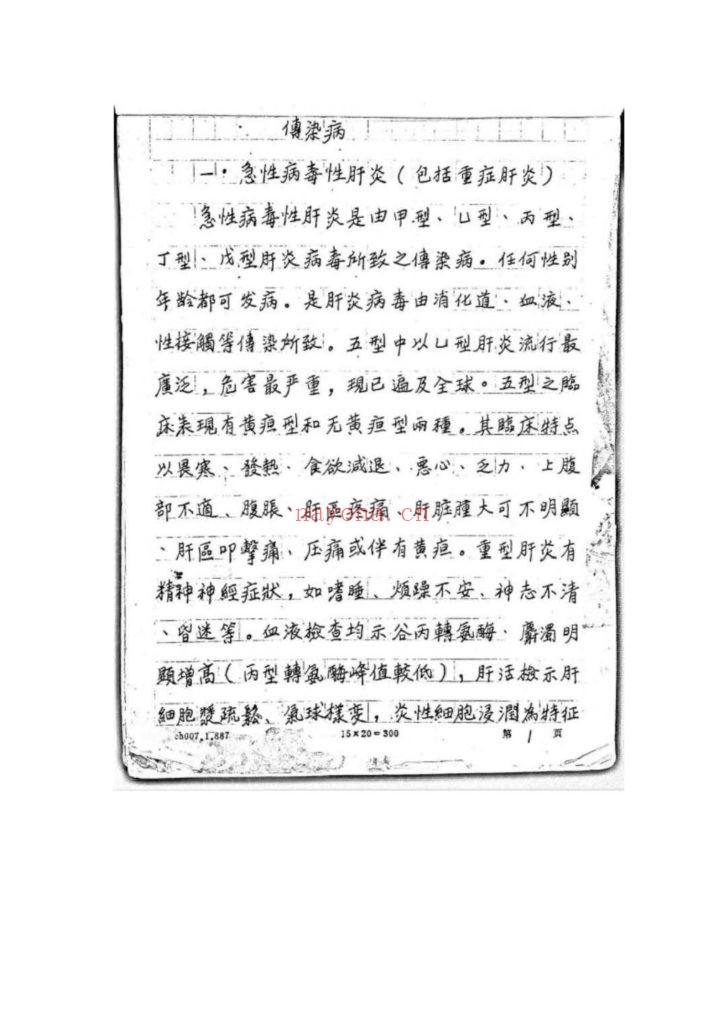 傳染病
一·急性病毒性肝炎(包括重症肝炎)
急性病毒性肝炎是由甲型、乙型、丙型、
丁型、戊型肝炎病毒所致之傳染病。任何性别
年龄都可发病。是肝炎病毒由消化道、血液、
性接觸等傳染所致。五型中以乙型肝炎流行最
廣泛,危害最严重,現已遍及全球。五型之臨
床表現有黄疸型和无黄疸型兩種。其臨床特点
以畏寒、發熱、食欲減退、悪心、乏力、上腹
部不適、腹脹、肝區疼痛、肝脏腫大可不明顯
nayona.cn
、肝區叩擊痛、压痛或伴有黄疸。重型肝炎有
精神神經症狀,如嗜睡、煩躁不安、神志不清
、昏迷等。血液檢查均示谷丙轉氨酶、麝濁明
顯增高(丙型轉氨酶峰值較低),肝活檢示肝
細胞漿疏鬆、氣球樣变,炎性細胞浸潤為特征
ch007.1.887 15×20=300 第 1 頁